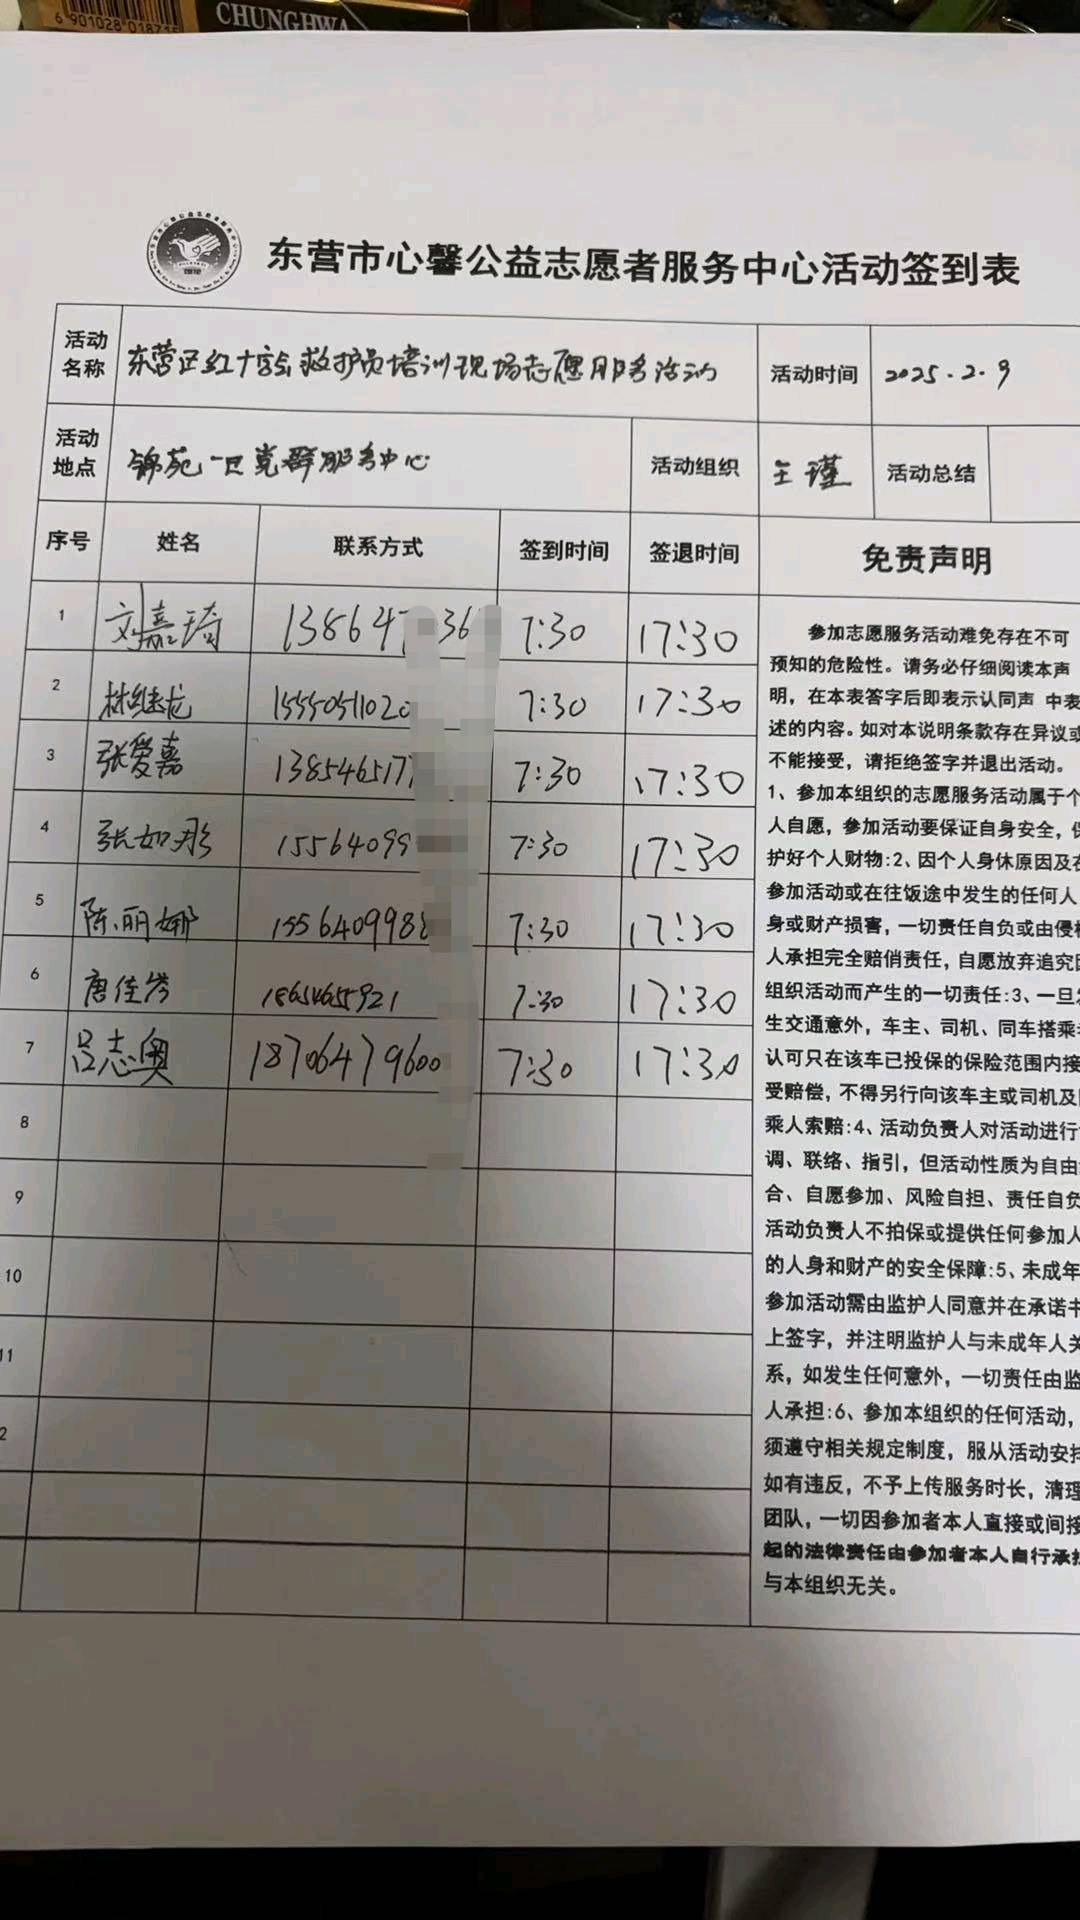 6 901028 018715
CHUNGHWA
东营市心馨公益志愿者服务中心活动签到表
活动名称 东营区红十字会救护员培训现场志愿服务活动 活动时间 2025.2.9
活动地点 锦苑一区党群服务中心 活动组织 王瑾 活动总结
序号 姓名 联系方式 签到时间 签退时间 免责声明
1 刘嘉琦 138647 36 7:30 17:30
2 林继龙 1555051102 7:30 17:30
3 张爱嘉 138546517 7:30 17:30
4 张如彤 15564099 7:30 17:30
5 陈丽娜 1556409988 7:30 17:30
6 唐佳 18654655921 7:30 17:30
7 吕志奥 18706479600 7:30 17:30
8
9
10
11
2
参加志愿服务活动难免存在不可
预知的危险性。请务必仔细阅读本声
明，在本表答字后即表示认同声 中表
述的内容。如对本说明条款存在异议或
不能接受，请拒绝签字并退出活动。
1、参加本组织的志愿服务活动属于个
人自愿，参加活动要保证自身安全，保
护好个人财物:2、因个人身休原因及在
参加活动或在往饭途中发生的任何人
身或财产损害，一切责任自负或由侵权
人承担完全赔俏责任，自愿放弃追究因
组织活动而产生的一切责任:3、一旦发
生交通意外，车主、司机、同车搭乘
认可只在该车已投保的保险范围内接
受赔偿，不得另行向该车主或司机及
乘人索赔:4、活动负责人对活动进行
调、联络、指引，但活动性质为自由
合、自愿参加、风险自担、责任自负
活动负责人不拍保或提供任何参加人
的人身和财产的安全保障:5、未成年
参加活动需由监护人同意并在承诺书
上签字，并注明监护人与未成年人关
系，如发生任何意外，一切责任由监
人承担:6、参加本组织的任何活动，
须遵守相关规定制度，服从活动安排
如有违反，不予上传服务时长，清理
团队，一切因参加者本人直接或间接
起的法律责任由参加者本人自行承担
与本组织无关。